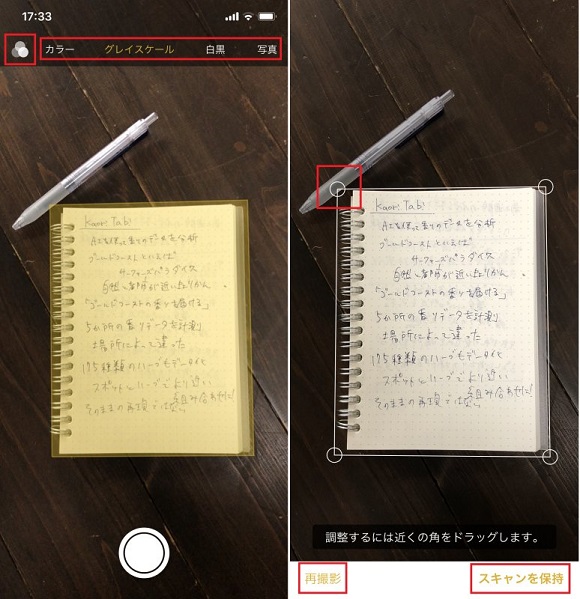 17:33
カラー グレイスケール 白黒 写真
Kaori Tabi
AIを使って香りのデータを分析
ゴールドコーストといえば
サーファーズパラダイス
自然と都市が近い
「ゴールドコーストの香りを届ける」
5か所の香りデータを計測
場所によって違った
175種類のハーブもデータ化
スポットハーブでより近い
そのままの再現では 組み合わせた!
Kaori Tabi
AIを使って香りのデータを分析
ゴールドコーストといえば
サーファーズパラダイス
自然と都市が近い
「ゴールドコーストの香りを届ける」
5か所の香りデータを計測
場所によって違った
175種類のハーブもデータ化
スポットハーブでより近い
そのままの再現では 組み合わせた!
調整するには近くの角をドラッグします。
再撮影 スキャンを保持